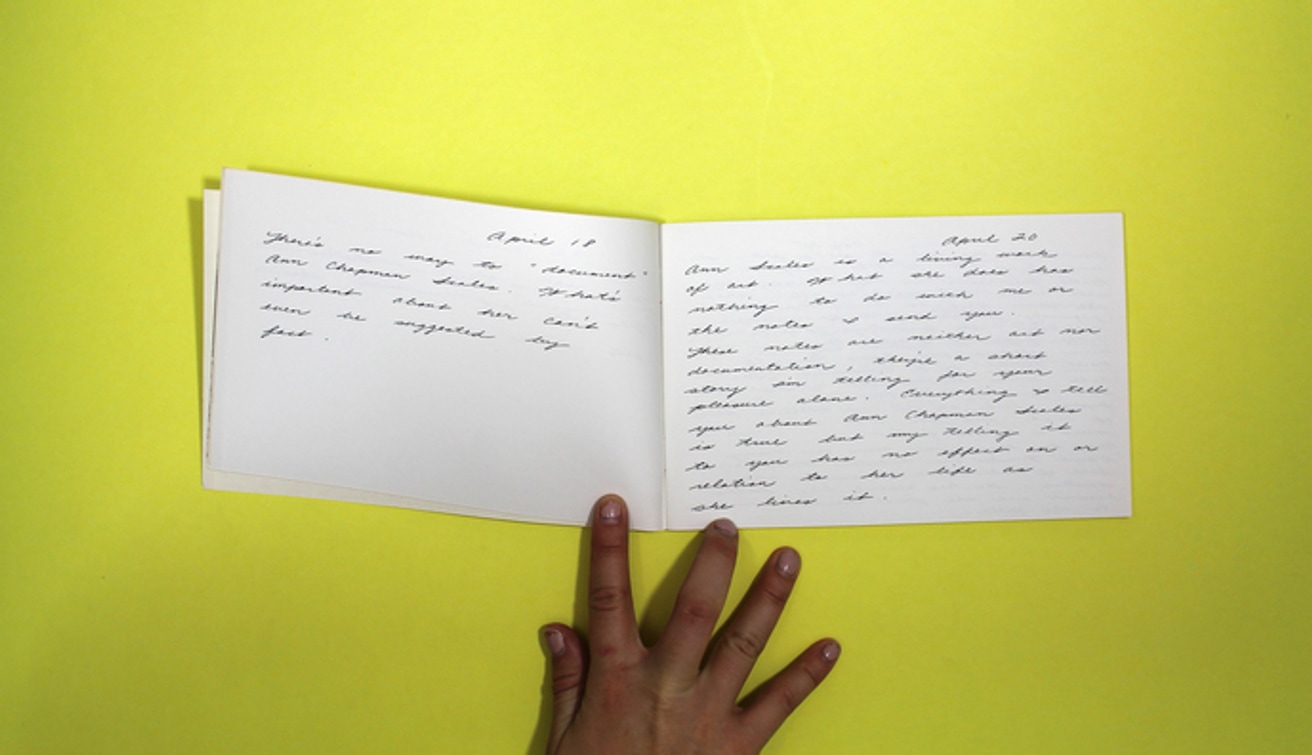 April 18
There's no way to "document"
Ann Chapman Scales. What's
important about her can't
even be suggested by
fact.
April 20
Ann Scales is a living work
of art. What she does has
nothing to do with me or
the notes I send you.
These notes are neither art nor
documentation, they're a short
story I'm telling for your
pleasure alone. Everything I tell
you about Ann Chapman Scales
is true but my telling it
to you has no effect on or
relation to her life as
she lives it.